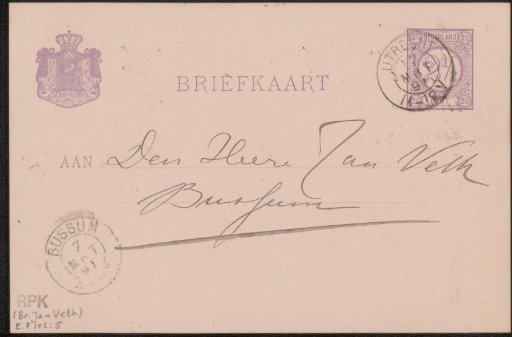 NEDERLAND
UTRECHT
7
MRT
91
BRIEFKAART
AAN Den Heere Jan Veth
Bussum
BUSSUM
7
MRT
91
RPK
(Br. Jan Veth)